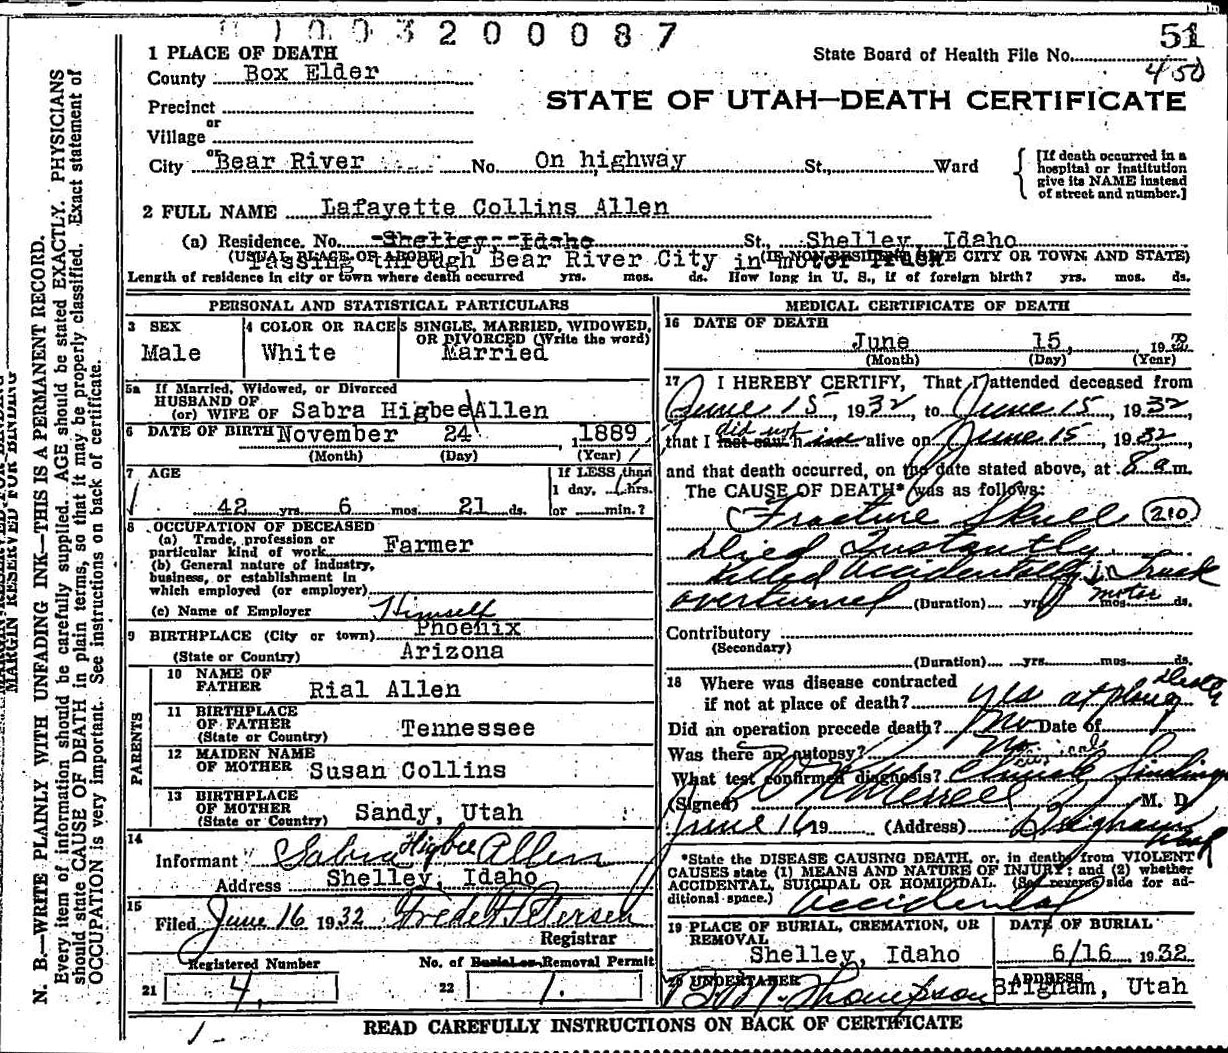 1003200087
51
450
1 PLACE OF DEATH
State Board of Health File No.
County Box Elder
STATE OF UTAH—DEATH CERTIFICATE
Precinct
or
Village
or
City Bear River No. On highway St., Ward
[If death occurred in a hospital or institution give its NAME instead of street and number.]
2 FULL NAME Lafayette Collins Allen
(a) Residence. No. Shelley, Idaho St., Shelley, Idaho
(USUAL PLACE OF ABODE) (IF NON-RESIDENT GIVE CITY OR TOWN AND STATE)
Passing through Bear River City in motor Truck
Length of residence in city or town where death occurred yrs. mos. ds. How long in U. S., if of foreign birth? yrs. mos. ds.
PERSONAL AND STATISTICAL PARTICULARS
3 SEX
Male
4 COLOR OR RACE
White
5 SINGLE, MARRIED, WIDOWED, OR DIVORCED (Write the word)
Married
5a If Married, Widowed, or Divorced
HUSBAND OF
(or) WIFE OF Sabra Higbee Allen
6 DATE OF BIRTH November 24 1889
(Month) (Day) (Year)
7 AGE
If LESS than
1 day, hrs.
42 yrs. 6 mos. 21 ds. or min.?
8 OCCUPATION OF DECEASED
(a) Trade, profession or
particular kind of work Farmer
(b) General nature of industry,
business, or establishment in
which employed (or employer)
(c) Name of Employer Himself
9 BIRTHPLACE (City or town) Phoenix
(State or Country) Arizona
PARENTS
10 NAME OF
FATHER Rial Allen
11 BIRTHPLACE
OF FATHER
(State or Country) Tennessee
12 MAIDEN NAME
OF MOTHER Susan Collins
13 BIRTHPLACE
OF MOTHER
(State or Country) Sandy, Utah
14
Informant Sabra Higbee Allen
Address Shelley, Idaho
15
Filed June 16 1932 Petersen
Registrar
Registered Number
No. of Burial or Removal Permit
21 4.
22 1.
MEDICAL CERTIFICATE OF DEATH
16 DATE OF DEATH
June 15, 193
(Month) (Day) (Year)
17 I HEREBY CERTIFY, That I attended deceased from
June 15, 1932, to June 15, 1932,
did not
that I last saw him alive on June 15, 1932,
and that death occurred, on the date stated above, at 8 a m.
The CAUSE OF DEATH* was as follows:
Fracture Skull (210)
Died Instantly
Killed Accidentally in Truck
motor
overturned (Duration) yrs. mos. ds.
Contributory
(Secondary)
(Duration) yrs. mos. ds.
18 Where was disease contracted
if not at place of death? yes at place Death
Did an operation precede death? No Date of
Was there an autopsy? No
What test confirmed diagnosis? Clinical findings
(Signed) Merrell M. D.
June 16 19 (Address) Brigham Utah
*State the DISEASE CAUSING DEATH, or, in deaths from VIOLENT
CAUSES state (1) MEANS AND NATURE OF INJURY; and (2) whether
ACCIDENTAL, SUICIDAL OR HOMICIDAL. (See reverse side for additional space.)
Accidental
19 PLACE OF BURIAL, CREMATION, OR REMOVAL
Shelley, Idaho
DATE OF BURIAL
6/16 1932
20 UNDERTAKER
Thompson
ADDRESS
Brigham, Utah
READ CAREFULLY INSTRUCTIONS ON BACK OF CERTIFICATE
MARGIN RESERVED FOR BINDING
N. B.—WRITE PLAINLY WITH UNFADING INK—THIS IS A PERMANENT RECORD.
Every item of information should be carefully supplied. AGE should be stated EXACTLY. PHYSICIANS
should state CAUSE OF DEATH in plain terms, so that it may be properly classified. Exact statement of
OCCUPATION is very important. See instructions on back of certificate.